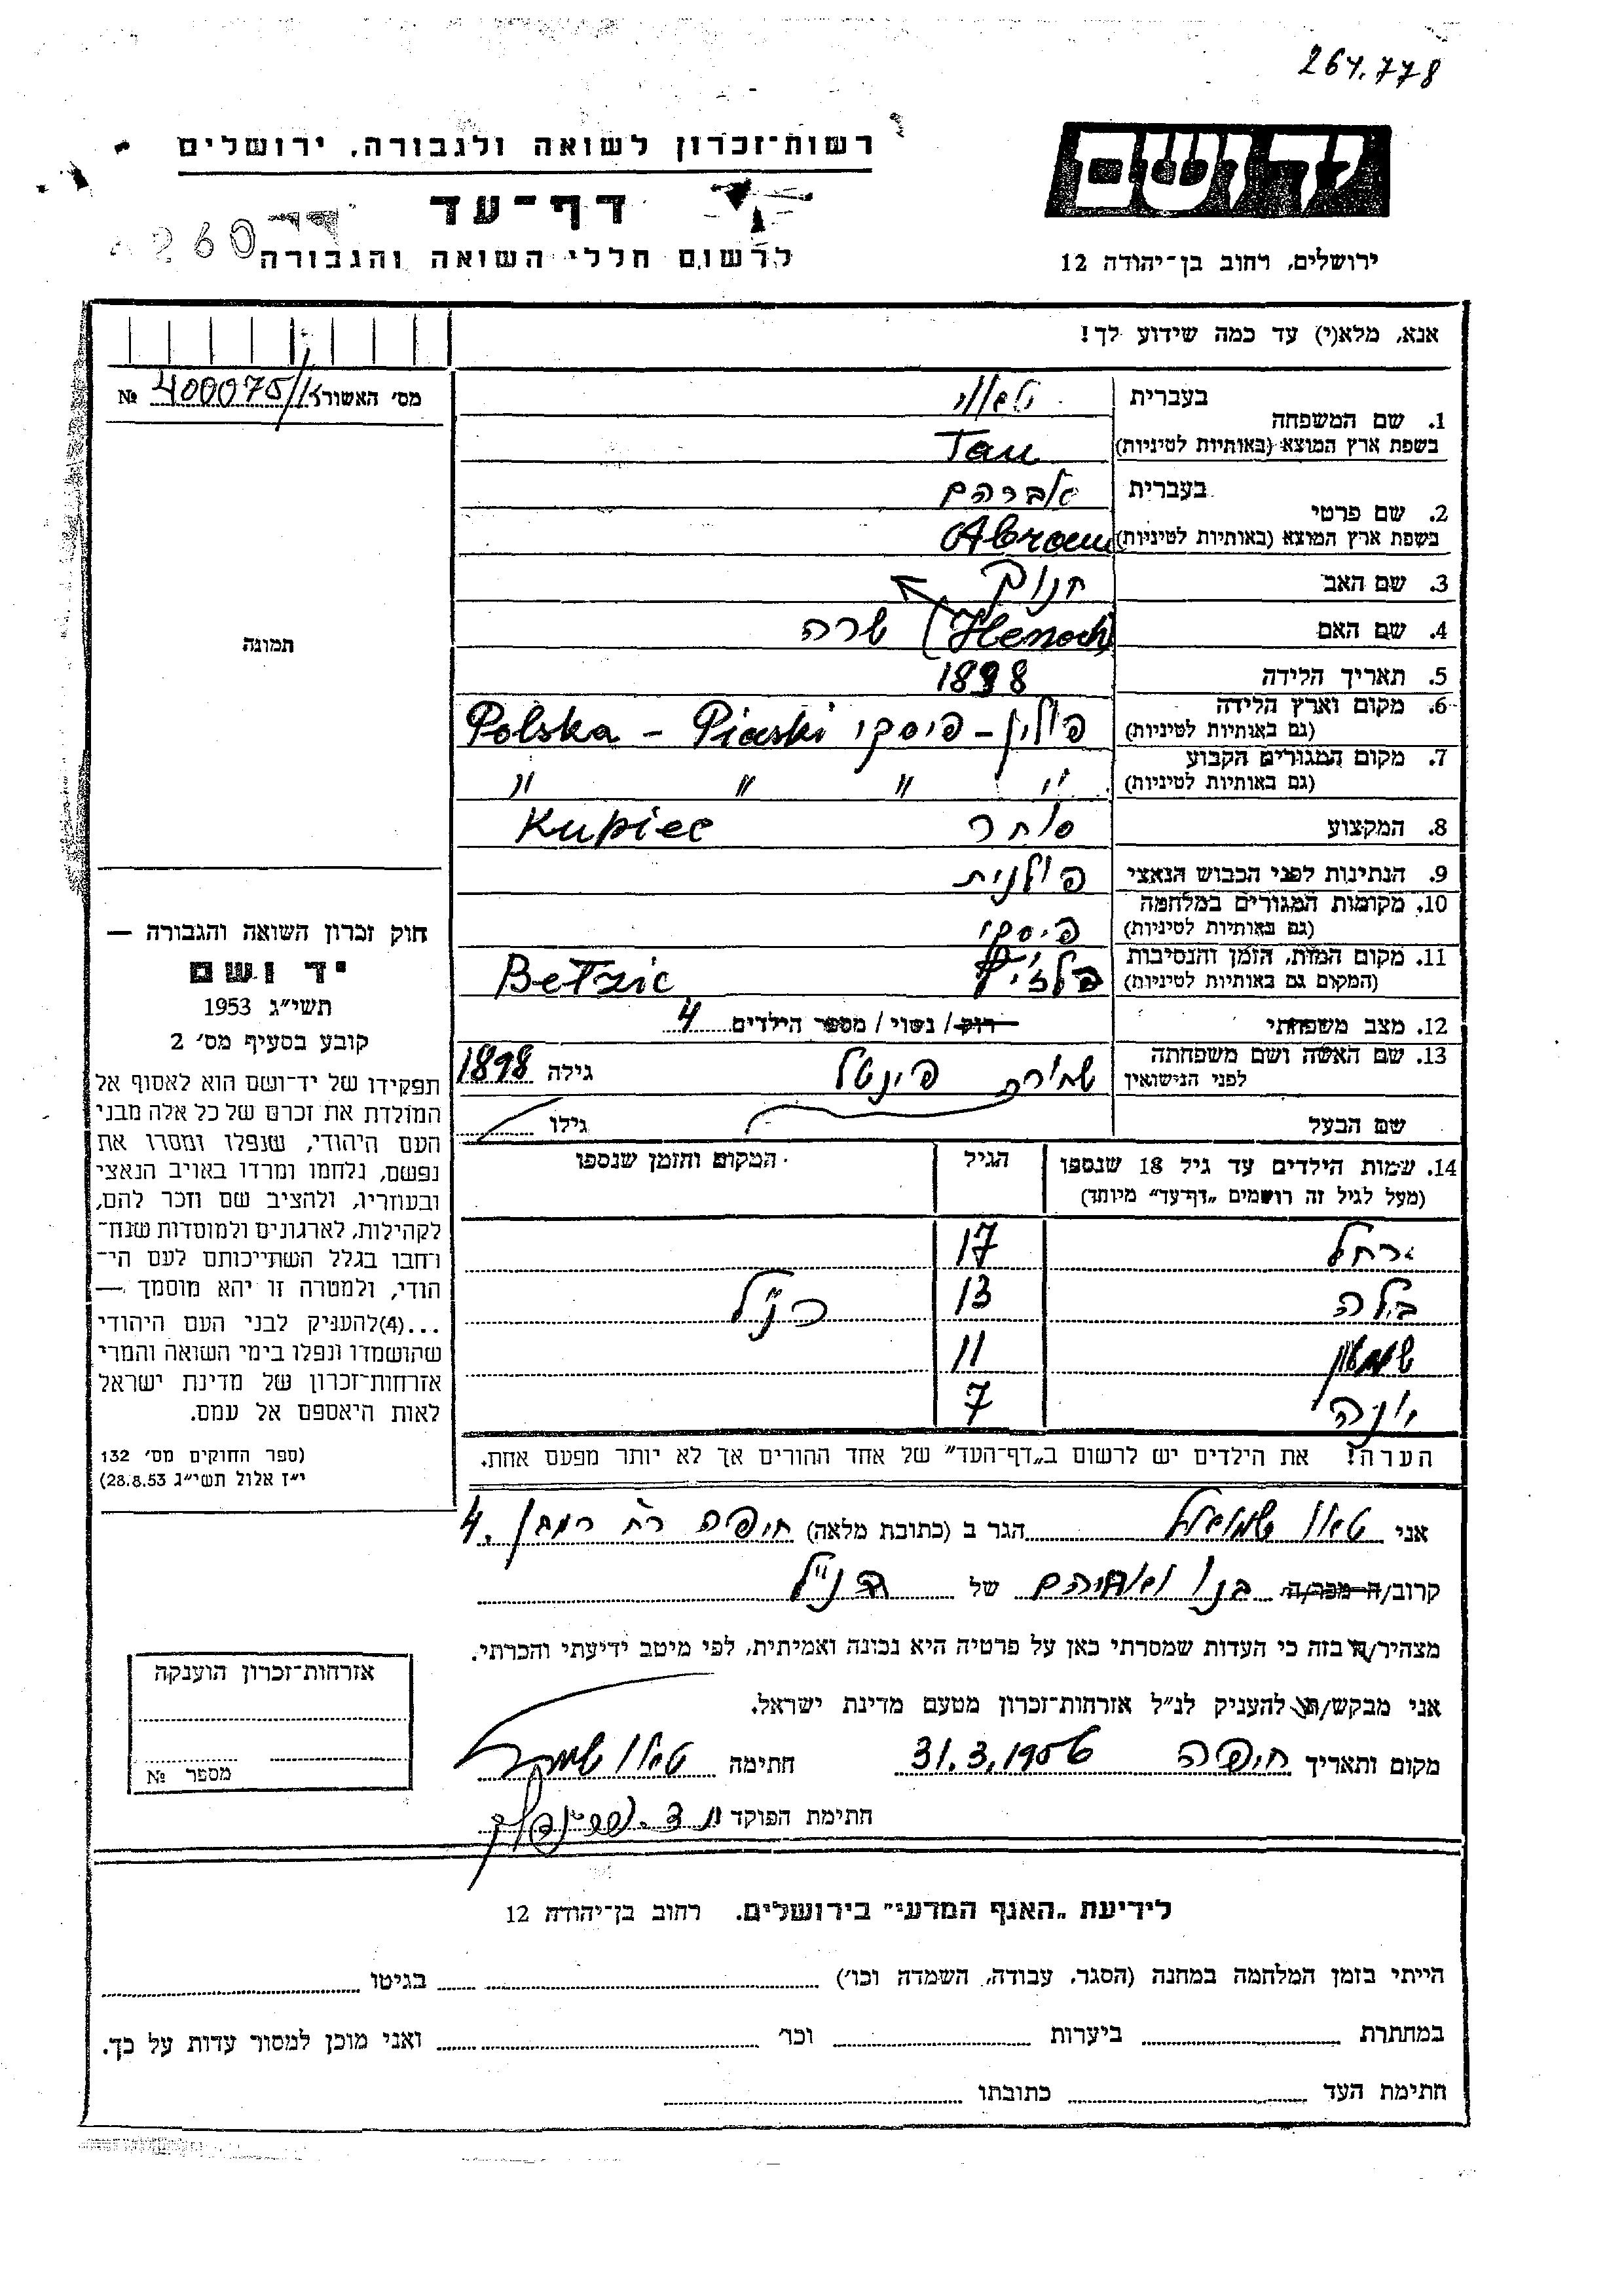 264.778
יד ושם
רשות־זכרון לשואה ולגבורה, ירושלים
דף־עד
לרשום חללי השואה והגבורה
ירושלים, רחוב בן־יהודה 12
אנא, מלא(י) עד כמה שידוע לך!
מס׳ האשור № 400075/
תמונה
1. שם המשפחה
בעברית טאו
בשפת ארץ המוצא (באותיות לטיניות) Tau
2. שם פרטי
בעברית אברהם
בשפת ארץ המוצא (באותיות לטיניות) Abram
3. שם האב חנוך
(Henoch)
4. שם האם שרה
5. תאריך הלידה 1898
6. מקום וארץ הלידה
(גם באותיות לטיניות) פולין - פיסקי Polska - Piaski
7. מקום המגורים הקבוע
(גם באותיות לטיניות) " " " "
8. המקצוע סוחר Kupiec
9. הנתינות לפני הכבוש הנאצי פולנית
10. מקומות המגורים במלחמה
(גם באותיות לטיניות) פיסקי
11. מקום המות, הזמן והנסיבות
(המקום גם באותיות לטיניות) Betzic
12. מצב משפחתי רוק / נשוי / מספר הילדים 4
13. שם האשה ושם משפחתה
לפני הנישואין פינטל גילה 1898
שם הבעל גילו
14. שמות הילדים עד גיל 18 שנספו
(מעל לגיל זה רושמים „דף־עד״ מיוחד)
הגיל
המקום והזמן שנספו
רחל 17
בלה 13 כנ״ל
שמעון 11
יונה 7
הערה! את הילדים יש לרשום ב„דף־העד״ של אחד ההורים אך לא יותר מפעם אחת.
חוק זכרון השואה והגבורה —
יד ושם
תשי״ג 1953
קובע בסעיף מס׳ 2
תפקידו של יד־ושם הוא לאסוף אל
המולדת את זכרם של כל אלה מבני
העם היהודי, שנפלו ומסרו את
נפשם, נלחמו ומרדו באויב הנאצי
ובעוזריו, ולהציב שם וזכר להם,
לקהילות, לארגונים ולמוסדות שנח־
רחבו בגלל השתייכותם לעם הי־
הודי, ולמטרה זו יהא מוסמך —
...(4)להעניק לבני העם היהודי
שהושמדו ונפלו בימי השואה והמרי
אזרחות־זכרון של מדינת ישראל
לאות היאספם אל עמם.
(ספר החוקים מס׳ 132
י״ז אלול תשי״ג 28.8.53)
אני טאו שמואל הגר ב (כתובת מלאה) חיפה 4
קרוב/ה מכר/ה בנו ואחיהם של הנ״ל
מצהיר/ה בזה כי העדות שמסרתי כאן על פרטיה היא נכונה ואמיתית, לפי מיטב ידיעתי והכרתי.
אני מבקש/ת להעניק לנ״ל אזרחות־זכרון מטעם מדינת ישראל.
מקום ותאריך חיפה 31.3.1956 חתימה טאו שמואל
חתימת הפוקד
אזרחות־זכרון הוענקה
מספר №
לידיעת „האגף המדעי״ בירושלים. רחוב בן־יהודה 12
הייתי בזמן המלחמה במחנה (הסגר, עבודה, השמדה וכו׳) בגיטו
במחתרת ביערות וכו׳ ואני מוכן למסור עדות על כך.
חתימת העד כתובתו